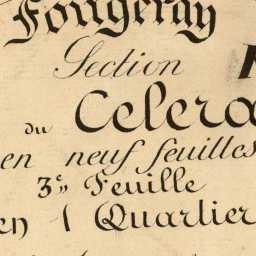 Fougeray
Section
du Celera
en neuf feuilles
3e Feuille
en 1 Quartier